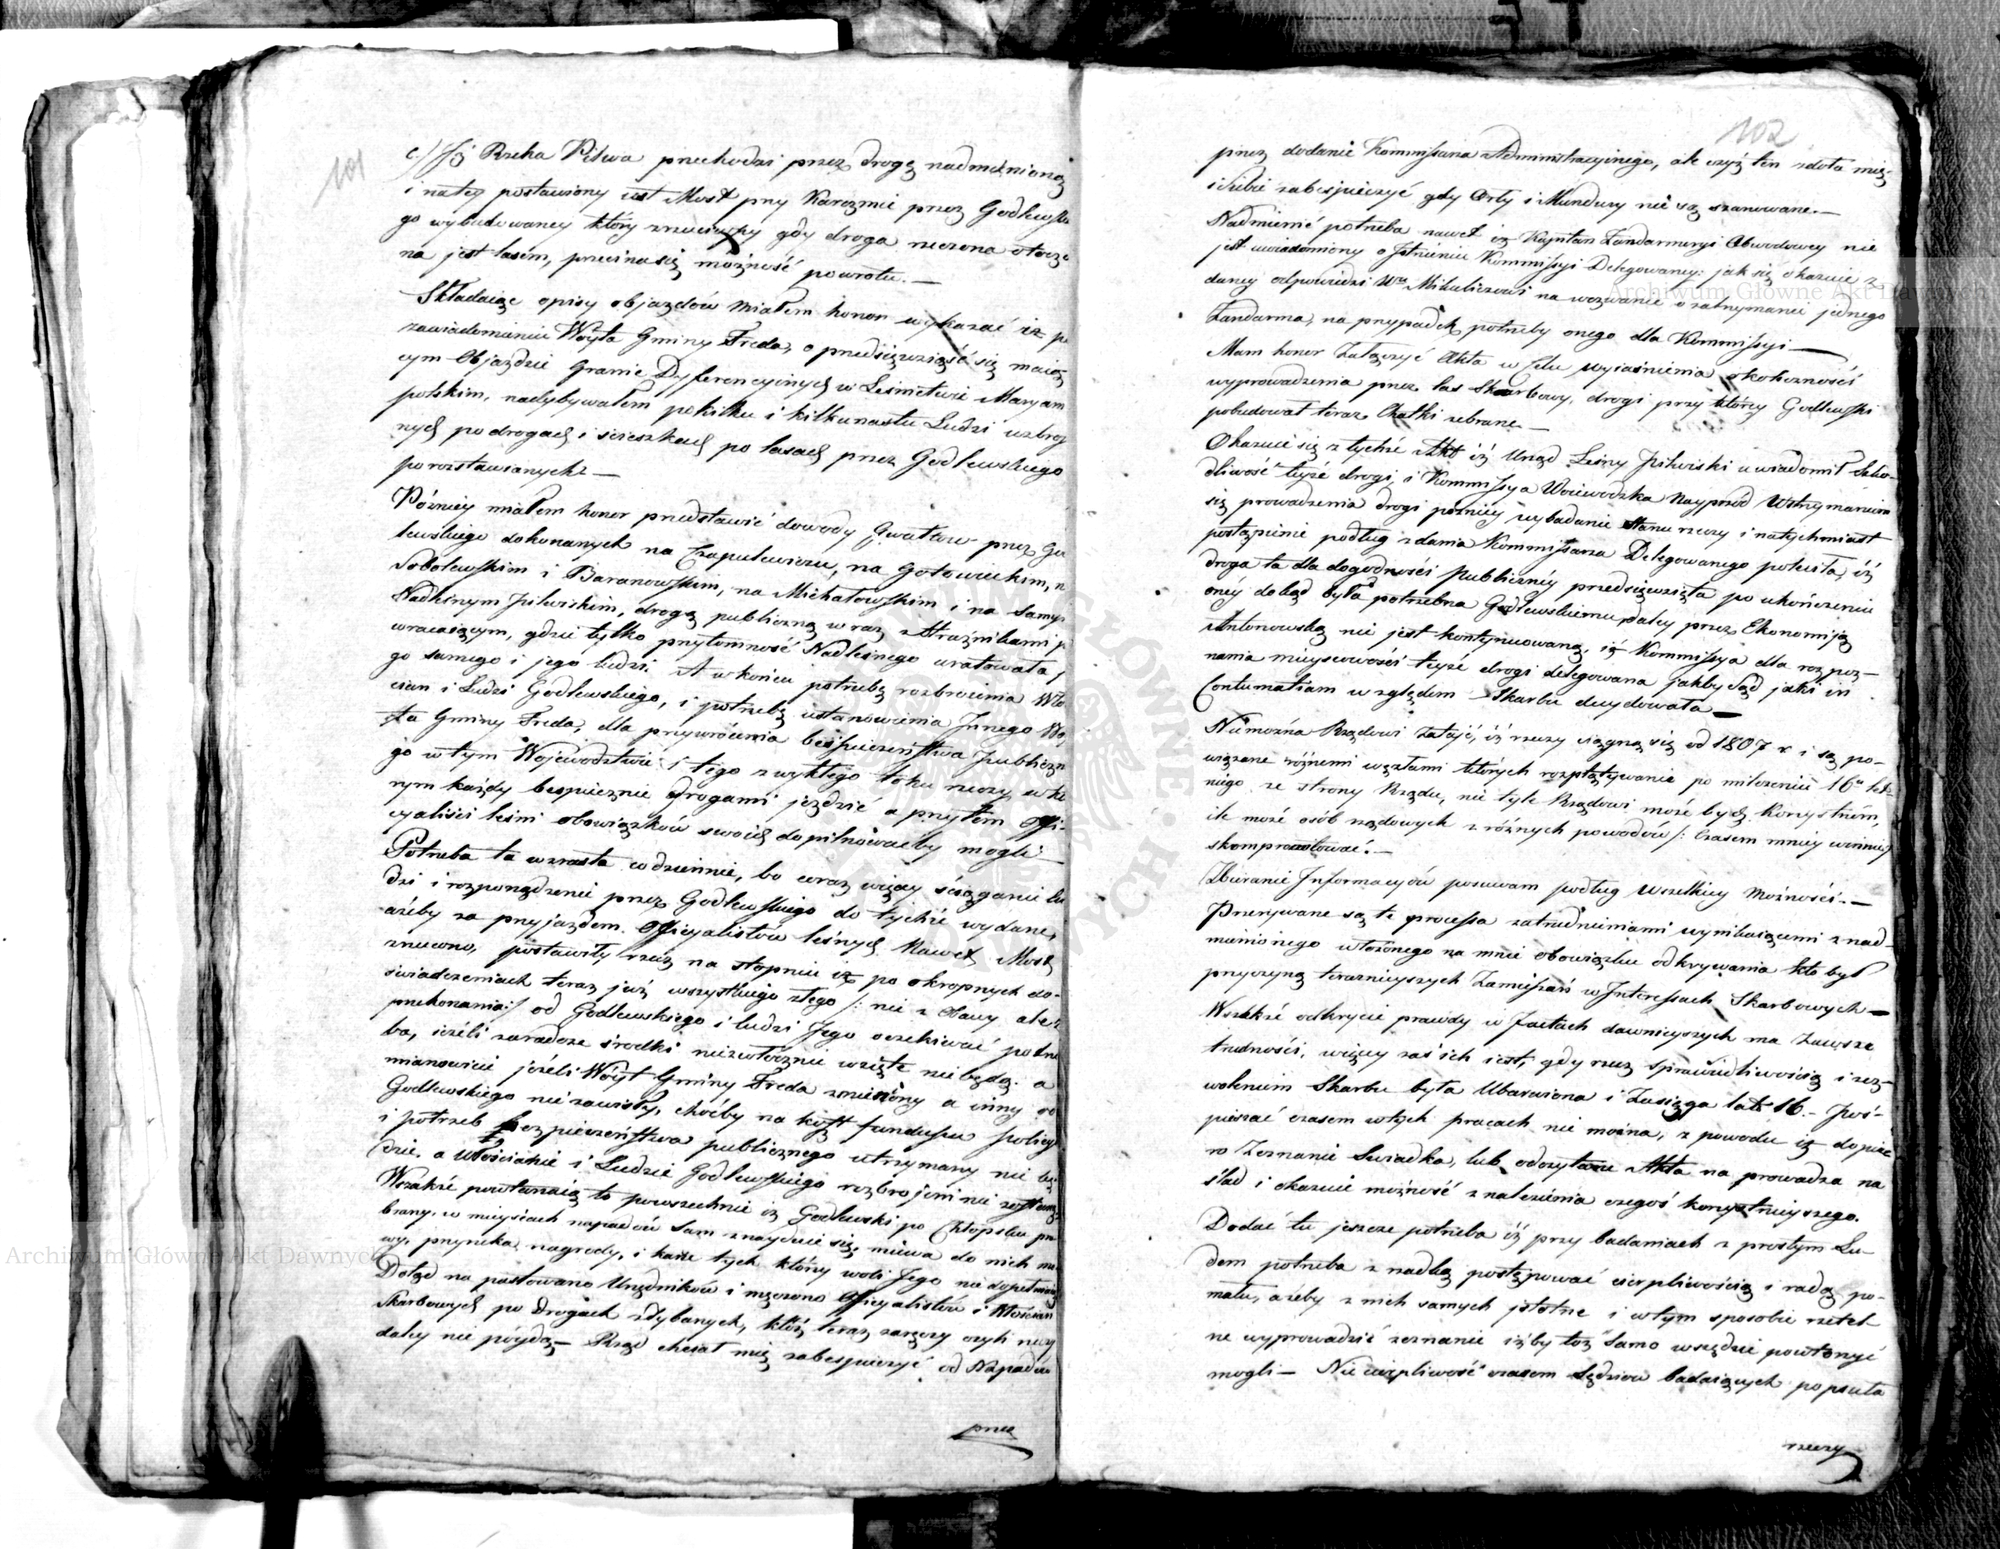 101
c.) Iż Rzeka Pilwa przechodzi przez drogę nadmienioną
i na tey postawiony iest Most przy Karczmie przez Godlewskie
go wybudowaney który zrzuciwszy gdy droga rzeczona otoczo
na jest lasem, przecina się możność powrotu. —
Składaiąc opisy objazdów miałem honor wykazać iż po
zawiadomieniu Woyta Gminy Freda, o przedsięwziąść się maią
cym Objeździe Granic Dyferencyinych w Leśnictwie Maryam
polskim, nadybywałem po kilku i kilkunastu Ludzi uzbroj
nych po drogach i ścieszkach po lasach przez Godlewskiego
porozstawianych. —
Późniey miałem honor przedstawić dowody Gwałtów przez Go
lewskiego dokonanych na Czapulewiczu, na Gotowickim, n
Sobolewskim i Baranowskim, na Michałowskim i na samym
Nadleśnym Pilwiskim, drogą publiczną wraz z Strażnikami p
wracaiącym, gdzie tylko przytomność Nadleśnego uratowała j
go samego i jego ludzi. A w końcu potrzebę rozbroienia Wło
cian i Ludzi Godlewskiego, i potrzebę ustanowienia Innego Wo
ta Gminy Freda, dla przywrócenia beśpieczeństwa Publiczne
go w tym Województwie i tego zwykłego toku rzeczy, w któ
rym każdy bespiecznie drogami jeździć a przytem Offi-
cyaliści leśni obowiązków swoich dopilnowaćby mogli —
Potrzeba ta wzrasta codziennie, bo coraz więcey ściąganie lu
dzi i rozporządzenie przez Godlewskiego do tychże wydane,
ażeby za przyjazdem Officyalistów leśnych Nawet Most
zrzucono, postawiły rzecz na stopniu iż po okropnych do-
świadczeniach teraz już wszystkiego złego /: nie z Obawy ale z
przekonania :/ od Godlewskiego i ludzi Jego oczekiwać potrze
ba, ieżeli zaradcze środki niezwłocznie wzięte nie będą. a
mianowicie jeżeli Woyt Gminy Freda zmieniony a inny od
Godlewskiego nie zawisły, choćby na koszt funduszu policyi
i potrzeb bezpieczeństwa publicznego utrzymany nie bę
dzie, a Włościanie i Ludzie Godlewskiego rozbrojeni nie zostaną.
Wszakże powtarzaią to powszechnie iż Godlewski po Chłopsku prze
brany, w mieyscach napadów sam znayduie się, miewa do nich mo
wy, przyrzeka nagrody, i karze tych którzy woli Jego nie dopełniaią
Dotąd napastowano Urzędników i męczono Officyalistów i Włościan
Skarbowych po Drogach zdybanych, któż teraz zaręczy czyli rzeczy
daley nie póydą — Rząd chciał mię zabespieczyć od Napadów
przez
102
przez dodanie Kommissarza Administracyinego, ale czyż ten zdoła mię
i siebie zabespieczyć gdy Orły i Mundury nie są szanowane. —
Nadmienić potrzeba nawet iż Kapitan Żandarmeryi Obwodowey nie
jest uwiadomiony o Istnieniu Kommissyi Delegowaney: jak się okazuie z
daney odpowiedzi Wmu Mikuliczowi na wezwanie o zatrzymanie jednego
Żandarma, na przypadek potrzeby onego dla Kommissyi —
Mam honor Załączyć Akta w Celu wyiaśnienia okoliczności
wyprowadzenia przez las Skarbowy, drogi przy którey Godlewski
pobudował teraz Chatki zebrane —
Okazuie się z tychże Akt iż Urząd Leśny Pilwiski uwiadomił Szko-
dliwość teyże drogi, i Kommissya Woiewódzka Nayprzód Wstrzymaniem
się prowadzenia drogi, pózniey wybadanie Stanu rzeczy i natychmiast
postąpienie podług zdania Kommissarza Delegowanego poleciła, iż
droga ta dla dogodności Publiczney przedsięwzięta po ukończeniu
oney dokąd była potrzebna Godlewskiemu, daley przez Ekonomiją
Antonowską nie jest kontynuowaną, iż Kommissya dla rozpoz-
nania mieyscowości teyże drogi delegowana jakby Sąd jaki in
Contumatiam względem Skarbu decydowała —
Niemożna Rządowi zataić, iż rzeczy ciągną się od 1807 r. i są po-
wiązane różnemi węzłami których rozplątywanie po milczeniu 16u let-
niego ze strony Rządu, nie tyle Rządowi może być korzystném,
ile może osób rządowych z różnych powodów /: Czasem mniey winnie :/
skompromitować. —
Zbieranie Informacyów posuwam podług Wszelkiey Możności. —
Przerywane są te processa zatrudnieniami wynikaiącemi z nad-
mienionego włożonego na mnie obowiązku odkrywania kto był
przyczyną teraznieyszych Zamieszań w Interessach Skarbowych —
Wszakże odkrycie prawdy w Factach dawnieyszych ma Zawsze
trudności, więcey zaś ich iest, gdy rzecz sprawiedliwością i zez-
woleniem Skarbu była Ubarwiona i Zasięga lat 16. — Pośpieszać czasem w tych pracach nie można, z powodu iż dopie
ro Zeznanie Swiadka, lub odczytanie Akta na prowadza na
ślad i okazuie możność znalezienia czegoś korzystnieyszego.
Dodać tu jeszcze potrzeba iż przy badaniach z prostym Lu-
dem potrzeba z wielką postępować cierpliwością i radą po-
mału, ażeby z nich samych istotne i w tym sposobie rzetel
ne wyprowadzić zeznanie iżby toż samo wszędzie powtórzyć
mogli — Niecierpliwość czasem Sędziów badaiących popsuła
rzeczy
Archiwum Główne Akt Dawnych
Archiwum Główne Akt Dawnych